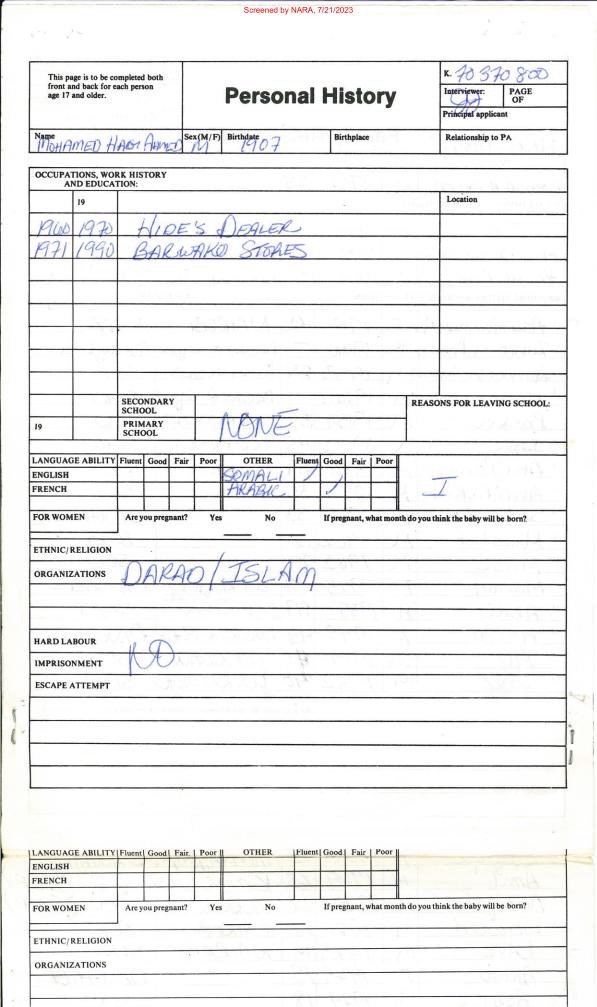 Screened by NARA, 7/21/2023
This page is to be completed both
front and back for each person
age 17 and older.
Personal History
K. 70 370 800
Interviewer:
PAGE
OF
Principal applicant
Name Sex(M/F) Birthdate Birthplace Relationship to PA
MOHAMED HAGI AHMED M 1907
OCCUPATIONS, WORK HISTORY
AND EDUCATION:
19 Location
1960 1970 HIDE'S DEALER
1971 1990 BARWAKO STORES
SECONDARY
SCHOOL
REASONS FOR LEAVING SCHOOL:
19 PRIMARY
SCHOOL
NONE
LANGUAGE ABILITY Fluent Good Fair Poor OTHER Fluent Good Fair Poor
ENGLISH SOMALI /
FRENCH ARABIC /
I
FOR WOMEN Are you pregnant? Yes No If pregnant, what month do you think the baby will be born?
ETHNIC/RELIGION
ORGANIZATIONS DARAD/ISLAM
HARD LABOUR
IMPRISONMENT NO
ESCAPE ATTEMPT
LANGUAGE ABILITY Fluent Good Fair. Poor OTHER Fluent Good Fair Poor
ENGLISH
FRENCH
FOR WOMEN Are you pregnant? Yes No If pregnant, what month do you think the baby will be born?
ETHNIC/RELIGION
ORGANIZATIONS